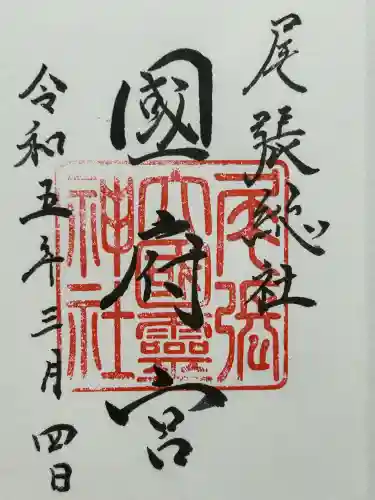 尾張総社
國府宮
令和五年三月四日
尾張
大國靈
神社